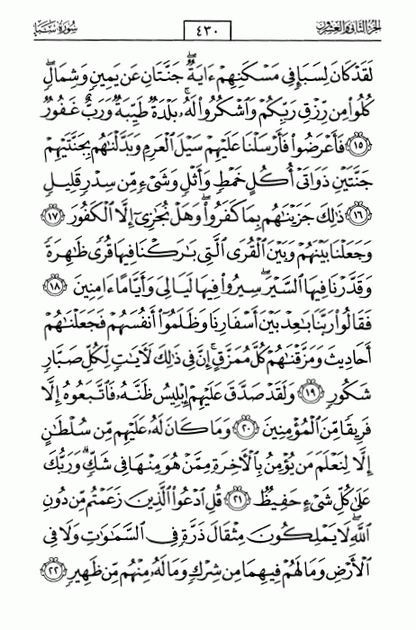 الجزء الثاني والعشرون ٤٣٠ سورة سبإ
لَقَدْ كَانَ لِسَبَإٍ فِي مَسْكَنِهِمْ ءَايَةٌ ۖ جَنَّتَانِ عَن يَمِينٍ وَشِمَالٍ ۖ
كُلُوا۟ مِن رِّزْقِ رَبِّكُمْ وَٱشْكُرُوا۟ لَهُۥ ۚ بَلْدَةٌ طَيِّبَةٌ وَرَبٌّ غَفُورٌ
١٥ فَأَعْرَضُوا۟ فَأَرْسَلْنَا عَلَيْهِمْ سَيْلَ ٱلْعَرِمِ وَبَدَّلْنَٰهُم بِجَنَّتَيْهِمْ
جَنَّتَيْنِ ذَوَاتَىْ أُكُلٍ خَمْطٍ وَأَثْلٍ وَشَىْءٍ مِّن سِدْرٍ قَلِيلٍ
١٦ ذَٰلِكَ جَزَيْنَٰهُم بِمَا كَفَرُوا۟ ۖ وَهَلْ نُجَٰزِىٓ إِلَّا ٱلْكَفُورَ ١٧
وَجَعَلْنَا بَيْنَهُمْ وَبَيْنَ ٱلْقُرَى ٱلَّتِى بَٰرَكْنَا فِيهَا قُرًى ظَٰهِرَةً
وَقَدَّرْنَا فِيهَا ٱلسَّيْرَ ۖ سِيرُوا۟ فِيهَا لَيَالِىَ وَأَيَّامًا ءَامِنِينَ ١٨
فَقَالُوا۟ رَبَّنَا بَٰعِدْ بَيْنَ أَسْفَارِنَا وَظَلَمُوٓا۟ أَنفُسَهُمْ فَجَعَلْنَٰهُمْ
أَحَادِيثَ وَمَزَّقْنَٰهُمْ كُلَّ مُمَزَّقٍ ۚ إِنَّ فِى ذَٰلِكَ لَءَايَٰتٍ لِّكُلِّ صَبَّارٍ
شَكُورٍ ١٩ وَلَقَدْ صَدَّقَ عَلَيْهِمْ إِبْلِيسُ ظَنَّهُۥ فَٱتَّبَعُوهُ إِلَّا
فَرِيقًا مِّنَ ٱلْمُؤْمِنِينَ ٢٠ وَمَا كَانَ لَهُۥ عَلَيْهِم مِّن سُلْطَٰنٍ
إِلَّا لِنَعْلَمَ مَن يُؤْمِنُ بِٱلْءَاخِرَةِ مِمَّنْ هُوَ مِنْهَا فِى شَكٍّ ۗ وَرَبُّكَ
عَلَىٰ كُلِّ شَىْءٍ حَفِيظٌ ٢١ قُلِ ٱدْعُوا۟ ٱلَّذِينَ زَعَمْتُم مِّن دُونِ
ٱللَّهِ ۖ لَا يَمْلِكُونَ مِثْقَالَ ذَرَّةٍ فِى ٱلسَّمَٰوَٰتِ وَلَا فِى
ٱلْأَرْضِ وَمَا لَهُمْ فِيهِمَا مِن شِرْكٍ وَمَا لَهُۥ مِنْهُم مِّن ظَهِيرٍ ٢٢